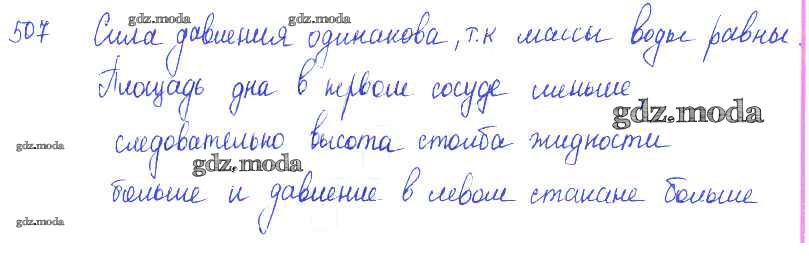 gdz.moda gdz.moda
507 Сила давления одинакова, т.к массы воды равны.
Площадь дна в первом сосуде меньше
gdz.moda
gdz.moda следовательно высота столба жидкости
gdz.moda
больше и давление в левом стакане больше
gdz.moda